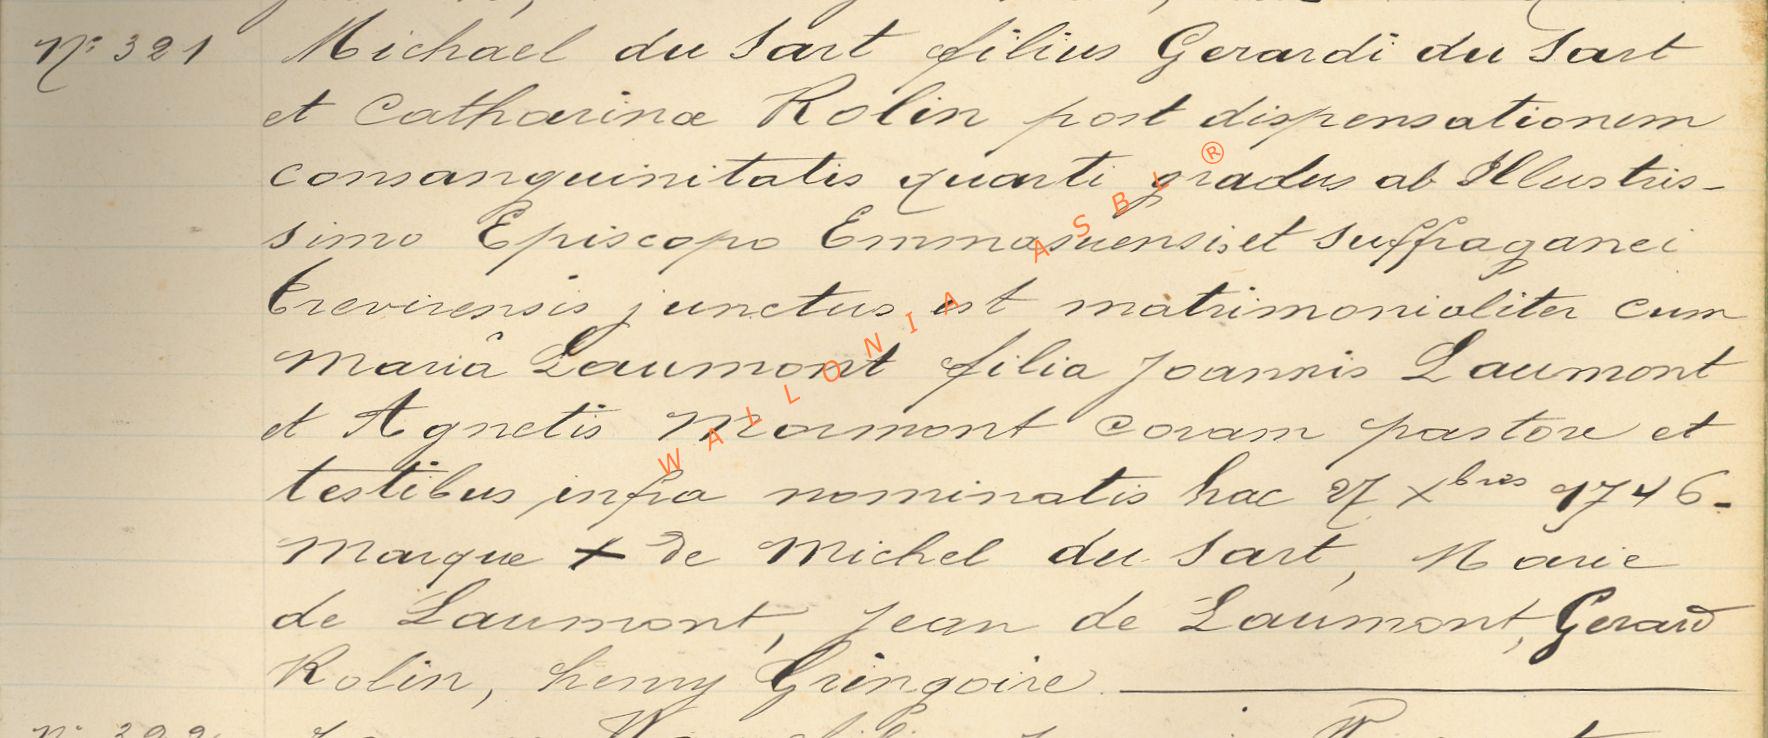 N° 321 Michael du Sart filius Gerardi du Sart
et Catharinæ Rolin post dispensationem
consanguinitatis quarti gradus ab Illustris-
simo Episcopo Emmasuensi et suffraganei
Trevirensis junctus est matrimonialiter cum
Mariâ Laumont filia Joannis Laumont
et Agnetis Mormont coram pastore et
testibus infra nominatis hac 27 xbris 1746-
Marque + de Michel du Sart, Marie
de Laumont, Jean de Laumont, Gerard
Rolin, henry Gringoire.
N° 322
WALLONIA ASBL ®